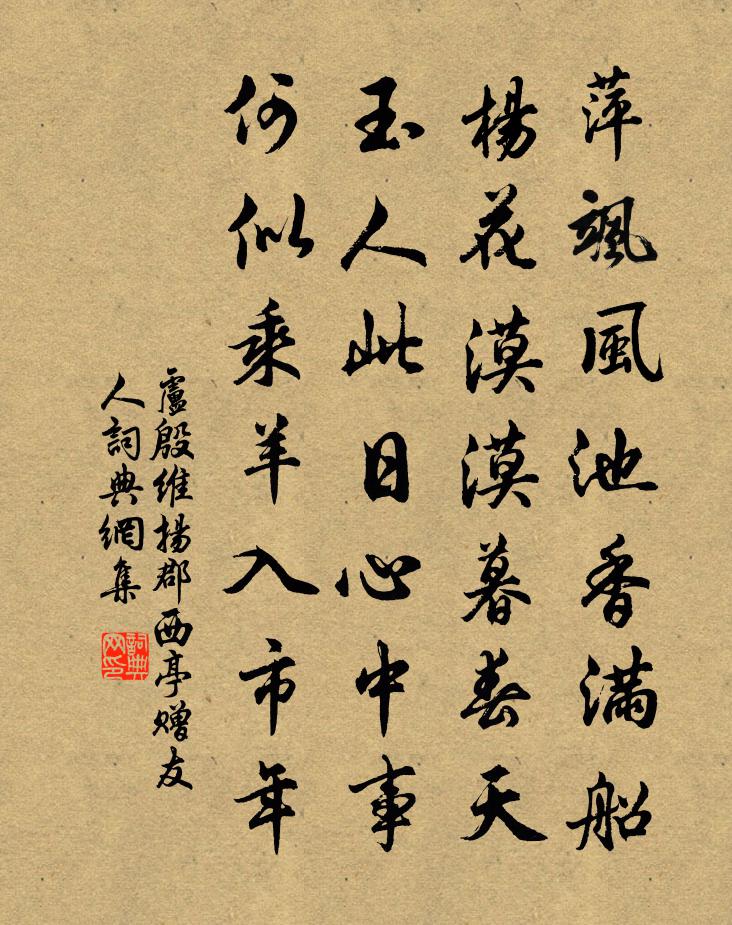 萍颯風池香滿船
楊花漠漠暮春天
玉人此日心中事
何似乘羊入市年
盧殷維揚郡西亭贈友
人詞典網集
詞典
网印